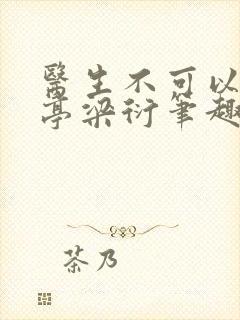 醫生不可以
亭梁衍筆趣
茶乃